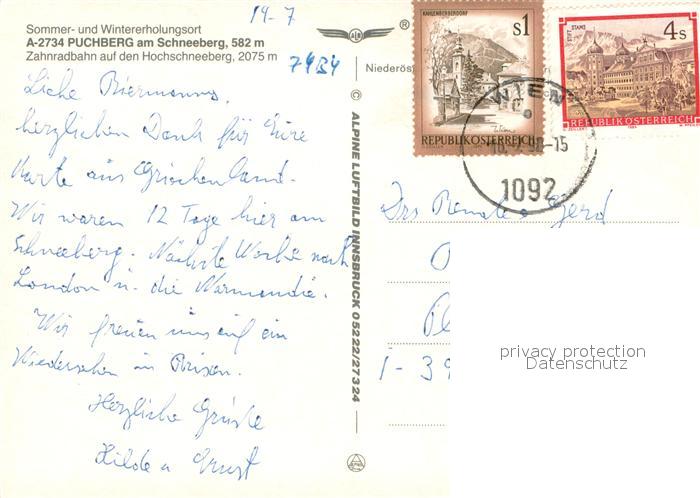 14-7
Sommer- und Wintererholungsort
A-2734 PUCHBERG am Schneeberg, 582 m
Zahnradbahn auf den Hochschneeberg, 2075 m
7484
Liebe Biermanns,
herzlichen Dank für Eure
Karte aus Griechenland.
Wir waren 12 Tage hier am
Schneeberg. Nächste Woche nach
London u. die Normandie.
Wir freuen uns auf ein
Wiedersehen in Brixen.
Herzliche Grüße
Hilde u Ernst
®
Niederös
© ALPINE LUFTBILD INNSBRUCK 05222/27324
KAHLENBERGERDORF
s1
REPUBLIK ÖSTERREICH
STIFT STAMS
4s
REPUBLIK ÖSTERREICH
WIEN
-15
1092
Drs Renate u Gerd
I-39
privacy protection
Datenschutz